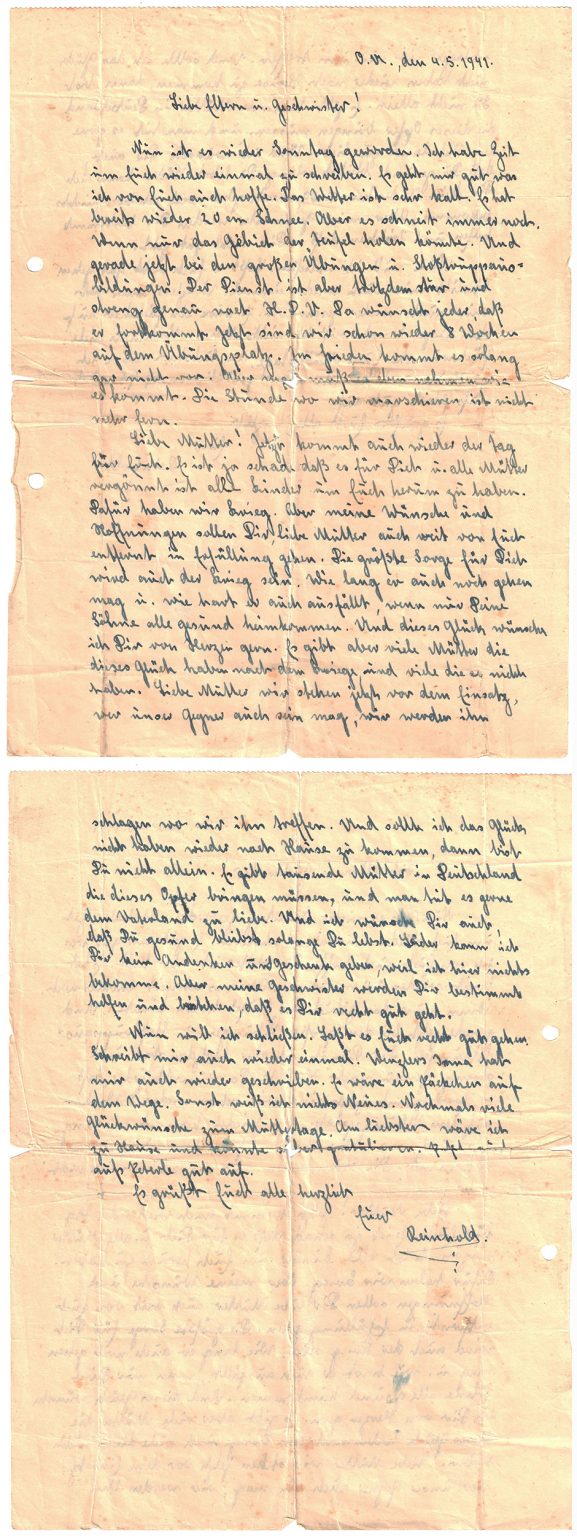 O.U., den 4.5.1941.
Liebe Eltern u. Geschwister!
Nun ist es wieder Sonntag geworden. Ich habe Zeit
um Euch wieder einmal zu schreiben. Es geht mir gut was
ich von Euch auch hoffe. Das Wetter ist sehr kalt. Es hat
bereits wieder 20 cm Schnee. Aber es schneit immer noch.
Wenn nur das Gebiet der Teufel holen könnte. Und
gerade jetzt bei den großen Übungen u. Stoßtruppaus-
bildungen. Der Dienst ist aber trotzdem stur und
streng genau nach H.D.V. Da wünscht jeder daß
er fortkommt. Jetzt sind wir schon wieder 8 Wochen
auf dem Übungsplatz. Im Frieden kommt es solang
gar nicht vor. Aber man muß es eben nehmen wie
es kommt. Die Stunde wo wir marschieren, ist nicht
mehr fern.
Liebe Mutter! Jetzt kommt auch wieder der Tag
für Euch. Es ist ja schade daß es für Dich u. alle Mütter
vergönnt ist alle Kinder um Euch herum zu haben.
Dafür haben wir Krieg. Aber meine Wünsche und
Hoffnungen sollen Dir, liebe Mutter auch weit von Euch
entfernt in Erfüllung gehen. Die größte Sorge für Dich
wird auch der Krieg sein. Wie lang er auch noch gehen
mag u. wie hart er auch ausfällt, wenn nur Deine
Söhne alle gesund heimkommen. Und dieses Glück wünsche
ich Dir von Herzen gern. Es gibt aber viele Mütter die
dieses Glück haben nach dem Kriege, und viele die es nicht
haben. Liebe Mutter wir stehen jetzt vor dem Einsatz,
wer unser Gegner auch sein mag, wir werden ihn
schlagen wo wir ihn treffen. Und sollte ich das Glück
nicht haben wieder nach Hause zu kommen, dann bist
Du nicht allein. Es gibt tausende Mütter in Deutschland
die dieses Opfer bringen müssen, und man tut es gerne
dem Vaterland zu liebe. Und ich wünsche Dir auch,
daß Du gesund bleibst solange Du lebst. Leider kann ich
Dir kein Andenken und Geschenk geben, weil ich hier nichts
bekomme. Aber meine Geschwister werden Dir bestimmt
helfen und beistehen, daß es Dir recht gut geht.
Nun will ich schließen. Laßt es Euch recht gut gehen.
Schreibt mir auch wieder einmal. Wenglers Irma hat
mir auch wieder geschrieben. Es wäre ein Päckchen auf
dem Wege. Sonst weiß ich nichts Neues. Nochmals viele
Glückwünsche zum Muttertage. Am liebsten wäre ich
zu Hause und könnte selber gratulieren.
aufs Peterle gut auf.
Es grüßt Euch alle herzlich
Euer
Reinhold.